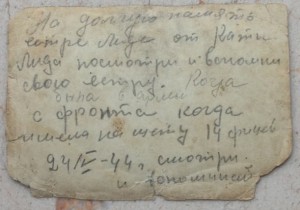 На долгую память
сестре Лиде от Кати
Лида посмотри и вспомни
свою сестру когда
была в
с фронта когда
имела на щету 14 фрицев
24/II-44 г. смотри
и вспоминай